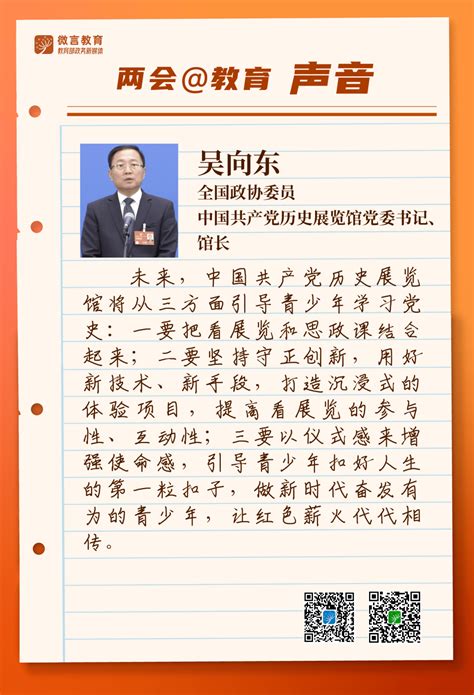 微言教育
教育部政务新媒体
两会@教育 声音
吴向东
全国政协委员
中国共产党历史展览馆党委书记、
馆长
未来，中国共产党历史展览
馆将从三方面引导青少年学习党
史：一要把看展览和思政课结合
起来；二要坚持守正创新，用好
新技术、新手段，打造沉浸式的
体验项目，提高看展览的参与
性、互动性；三要以仪式感来增
强使命感，引导青少年扣好人生
的第一粒扣子，做新时代奋发有
为的青少年，让红色薪火代代相
传。